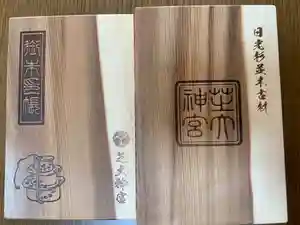 御朱印帳
芝大神宮
日光杉並木古材
芝大神宮